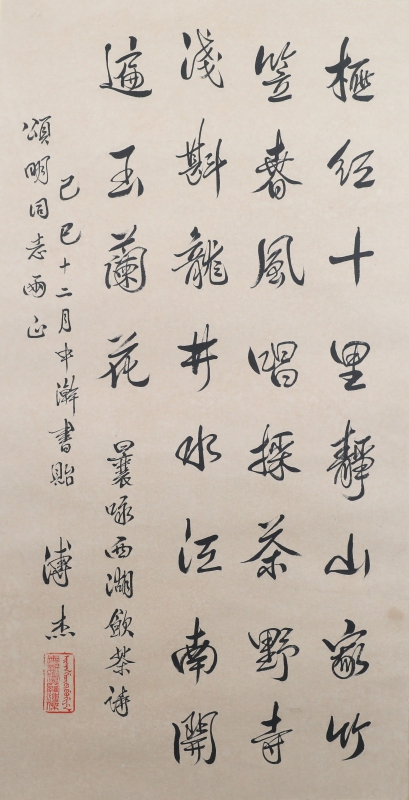 榧紅十里靜山家竹
笠春風唱採茶野寺
淺斟龍井水江南開
遍玉蘭花 曩咏西湖飲茶詩
己巳十二月中澣書貽
頌明同志兩正
溥杰